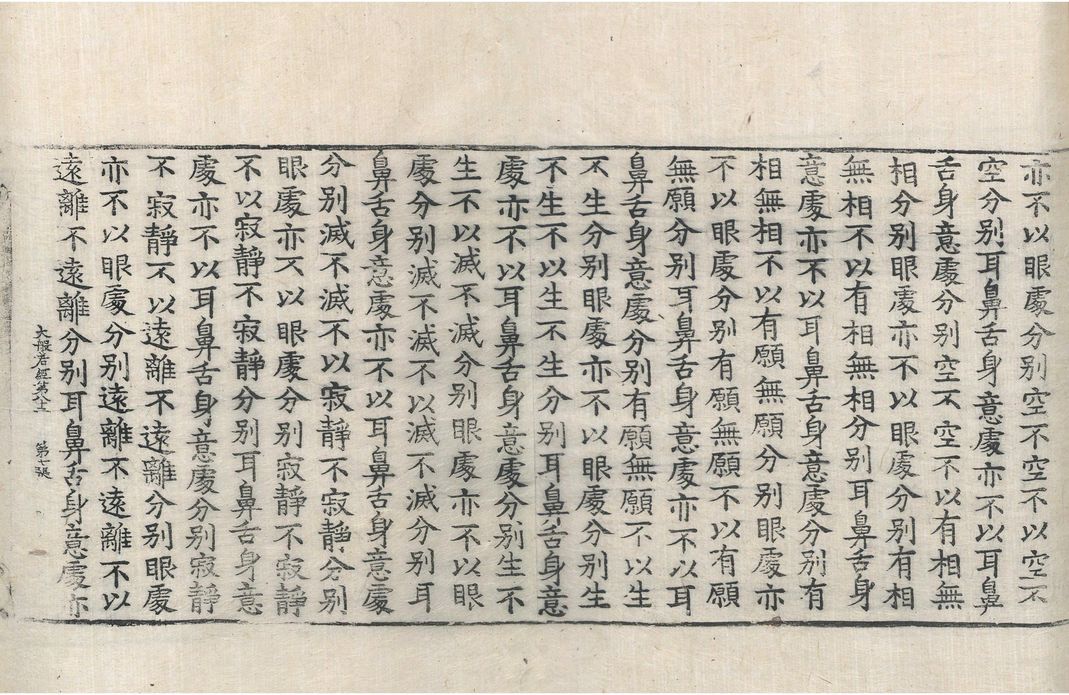 亦不以眼處分别空不空不以空不
空分别耳鼻舌身意處亦不以耳鼻
舌身意處分别空不空不以有相無
相分别眼處亦不以眼處分别有相
無相不以有相無相分别耳鼻舌身
意處亦不以耳鼻舌身意處分别有
相無相不以有願無願分别眼處亦
不以眼處分别有願無願不以有願
無願分别耳鼻舌身意處亦不以耳
鼻舌身意處分别有願無願不以生
不生分别眼處亦不以眼處分别生
不生不以生不生分别耳鼻舌身意
處亦不以耳鼻舌身意處分别生不
生不以滅不滅分别眼處亦不以眼
處分别滅不滅不以滅不滅分别耳
鼻舌身意處亦不以耳鼻舌身意處
分别滅不滅不以寂靜不寂靜分别
眼處亦不以眼處分别寂靜不寂靜
不以寂靜不寂靜分别耳鼻舌身意
處亦不以耳鼻舌身意處分别寂靜
不寂靜不以遠離不遠離分别眼處
亦不以眼處分别遠離不遠離不以
遠離不遠離分别耳鼻舌身意處亦
大般若經第八十